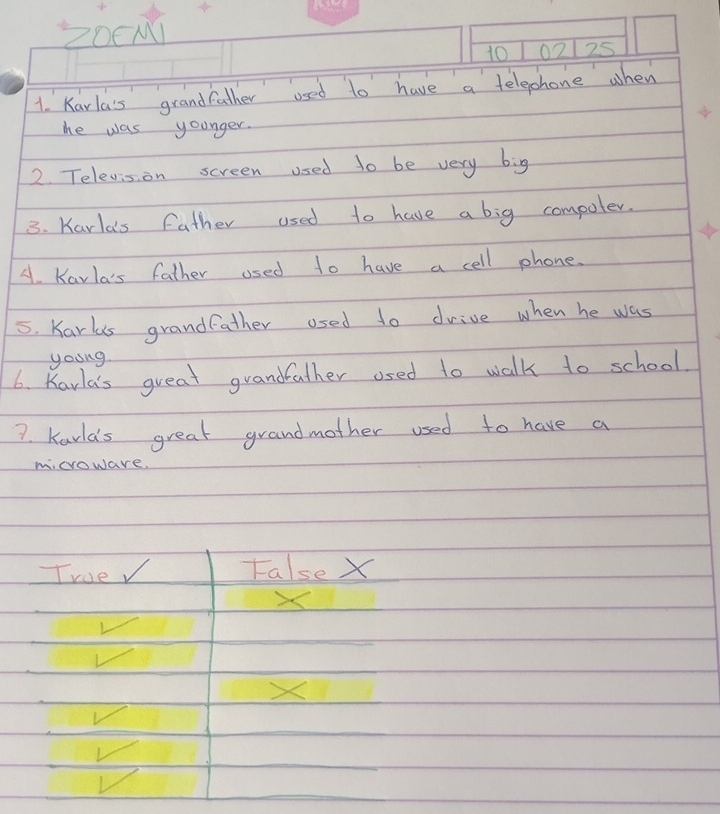 ZOEMI
10 02 25
1. Karla's grandfather used to have a telephone when
he was younger.
2. Television screen used to be very big
3. Karla's father used to have a big computer.
4. Karla's father used to have a cell phone.
5. Karla's grandfather used to drive when he was
young.
6. Karla's great grandfather used to walk to school.
7. Karla's great grandmother used to have a
microware.
True ✓ False X
X
✓
✓
X
✓
✓
✓